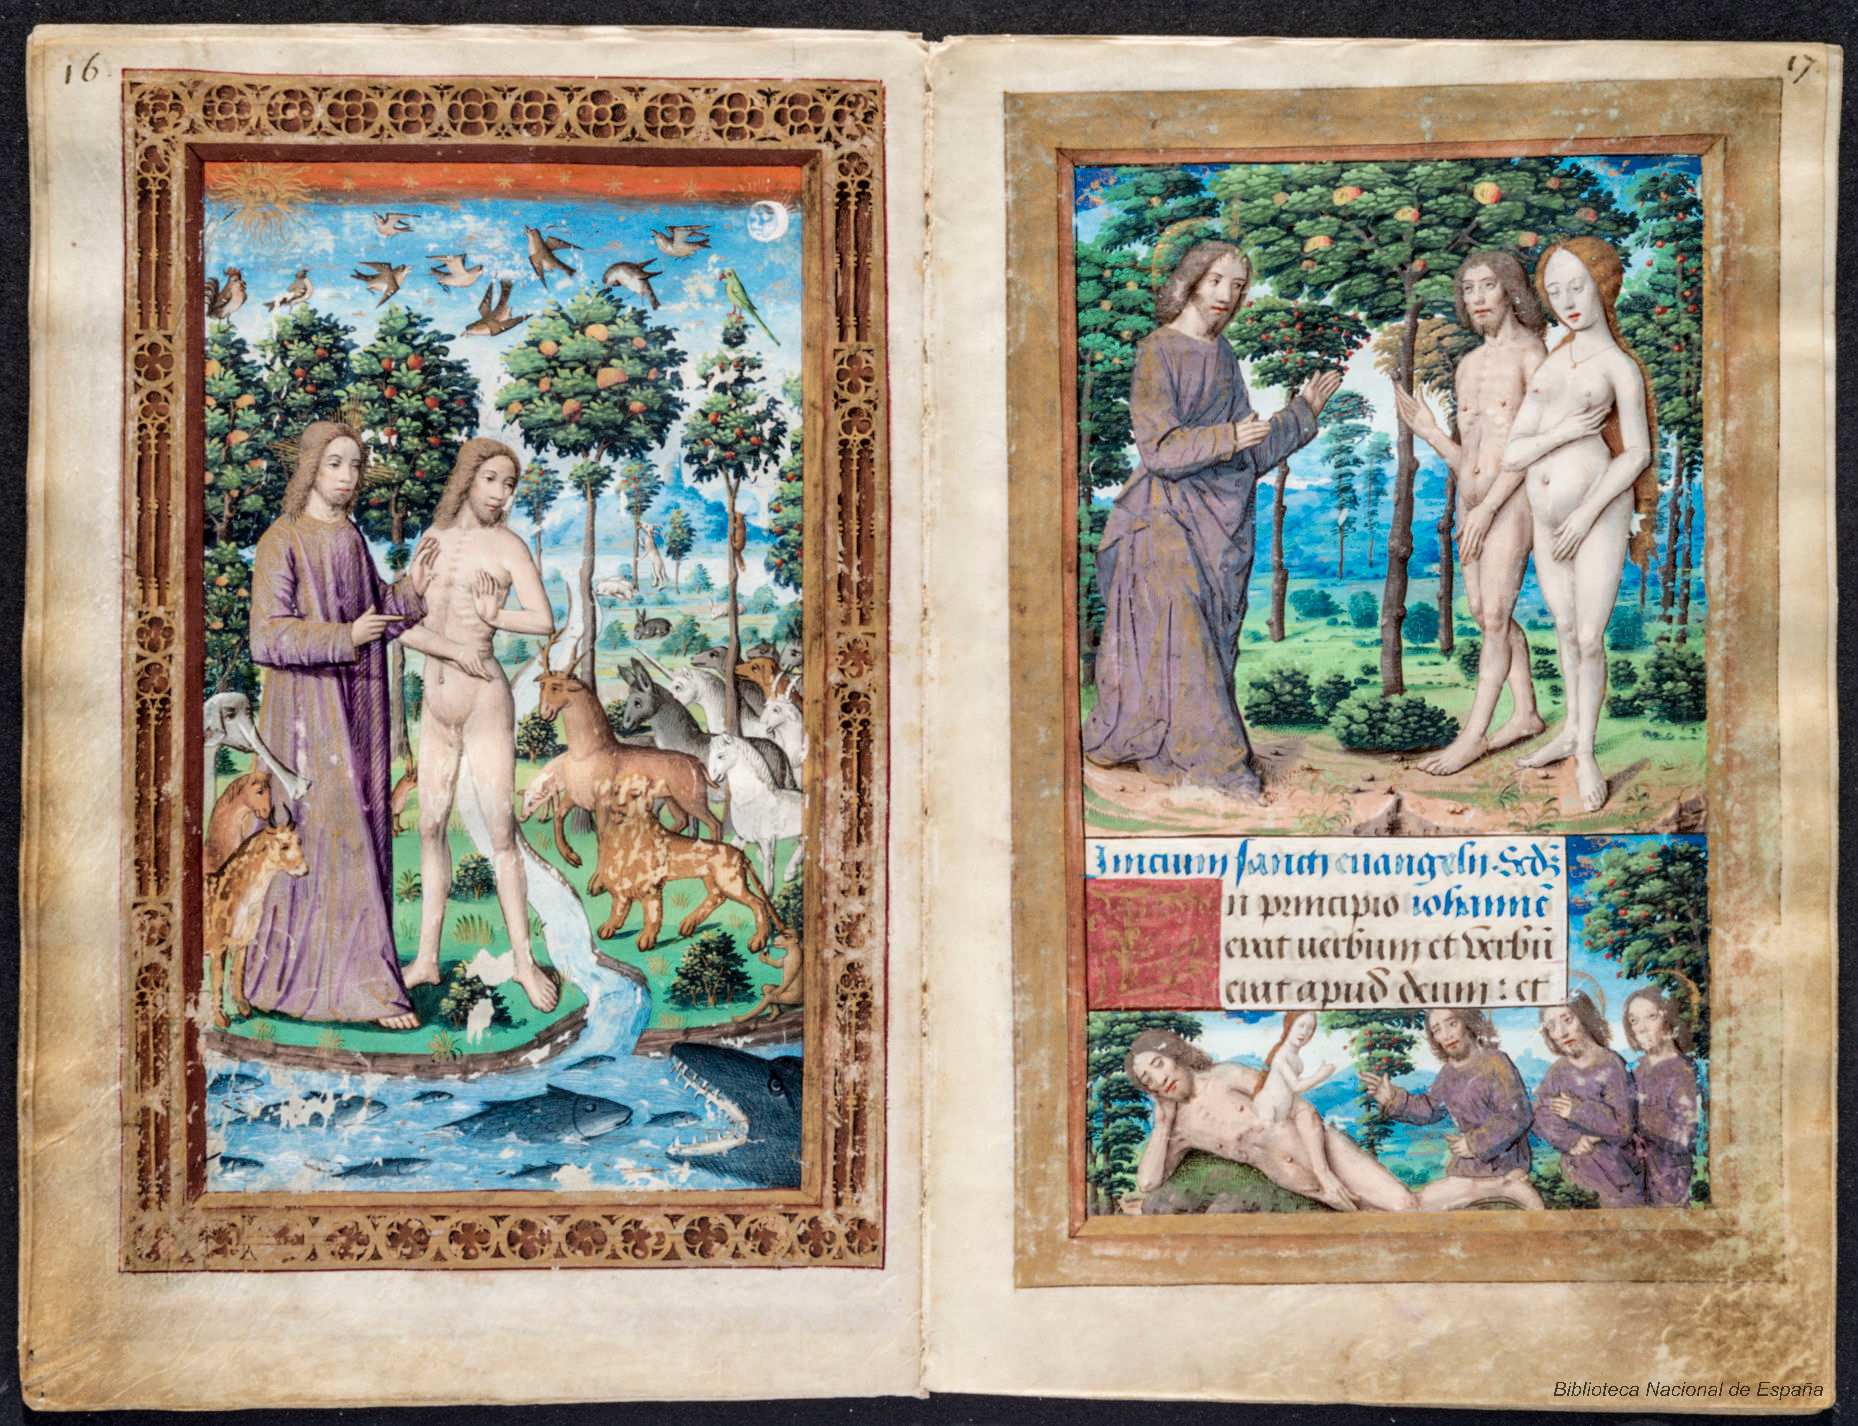 16
17
Inicium sancti euangelii. Scdȝ
In principio iohannē
erat uerbum et verbū
erat apud deum : et
Biblioteca Nacional de España